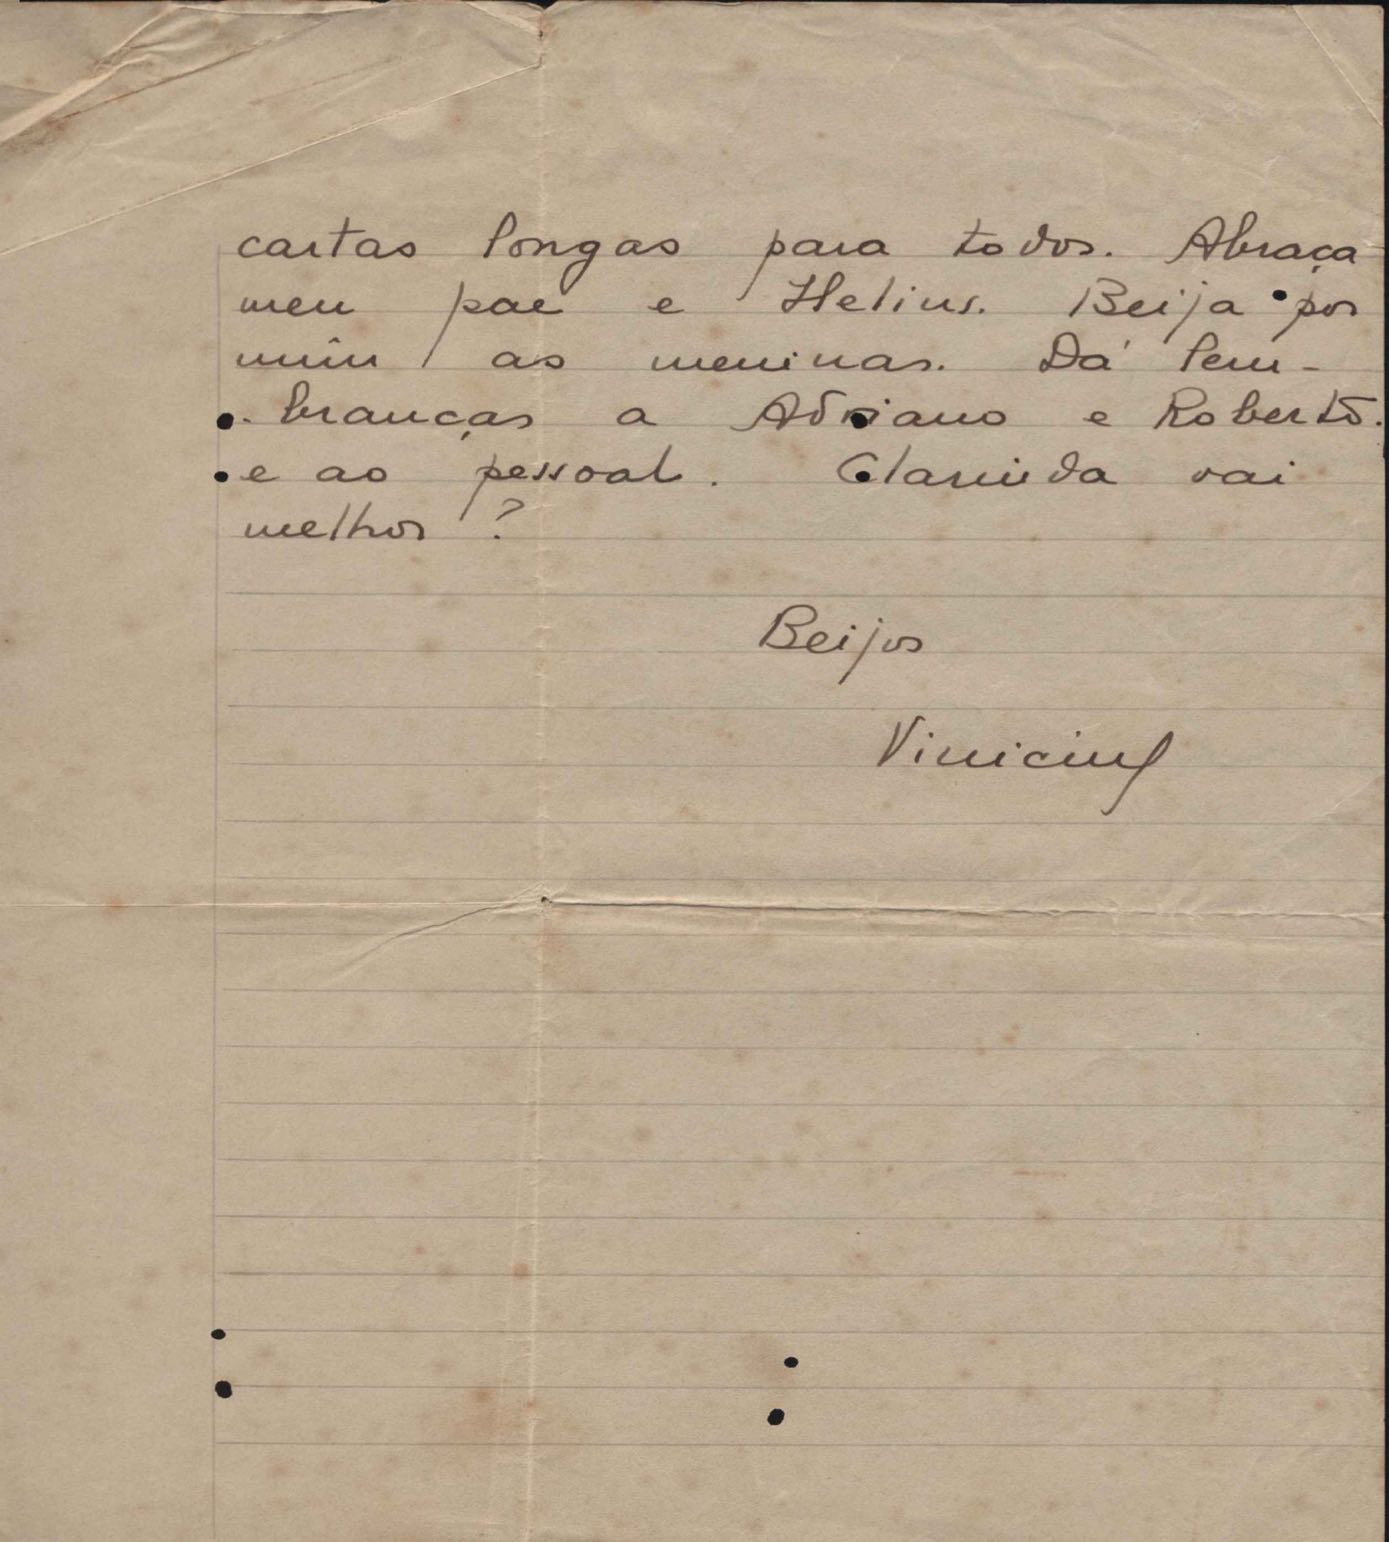 cartas longas para todos. Abraça
meu pae e Helius. Beija por
mim as meninas. Dá lem-
branças a Adriano e Roberto.
e ao pessoal. vai
melhor?
Beijos
Vinicius